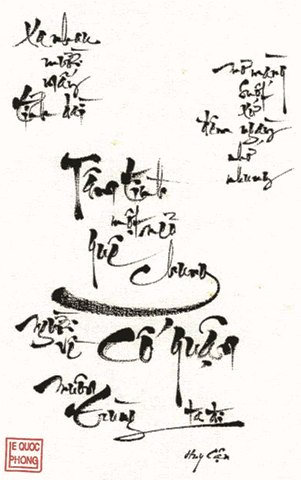 Xa nhau
mười
mấy
tỉnh dài
mơ màng
suốt
xứ
đêm ngày
nhớ
nhung
Tâm tình
một nẻo
quê chung
Người
về Cố quận
muôn
trùng ta đi
Huy Cận
LE QUOC
PHONG